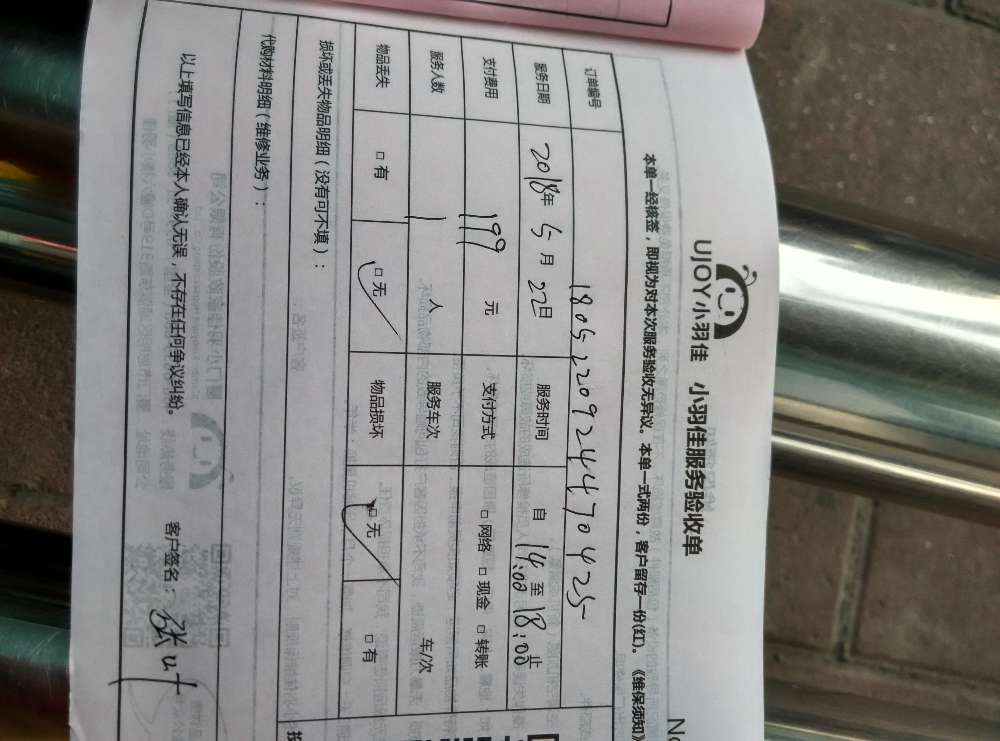 UJOY小羽佳 小羽佳服务验收单
No
本单一经核签，即视为对本次服务验收无异议。本单一式两份，客户留存一份(红)。《维保须知》
订单编号 18052209244470425
服务日期 2018年 5月 22日 服务时间 自 14:00 至 18:00 止
支付费用 199 元 支付方式 □ 网络 □ 现金 □ 转账
服务人数 1 人 服务车次 车/次
物品丢失 □ 有 □ 无 物品损坏 □ 无 □ 有
损坏或丢失物品明细（没有可不填）：
代购材料明细（维修业务）：
以上填写信息已经本人确认无误，不存在任何争议纠纷。 客户签名：